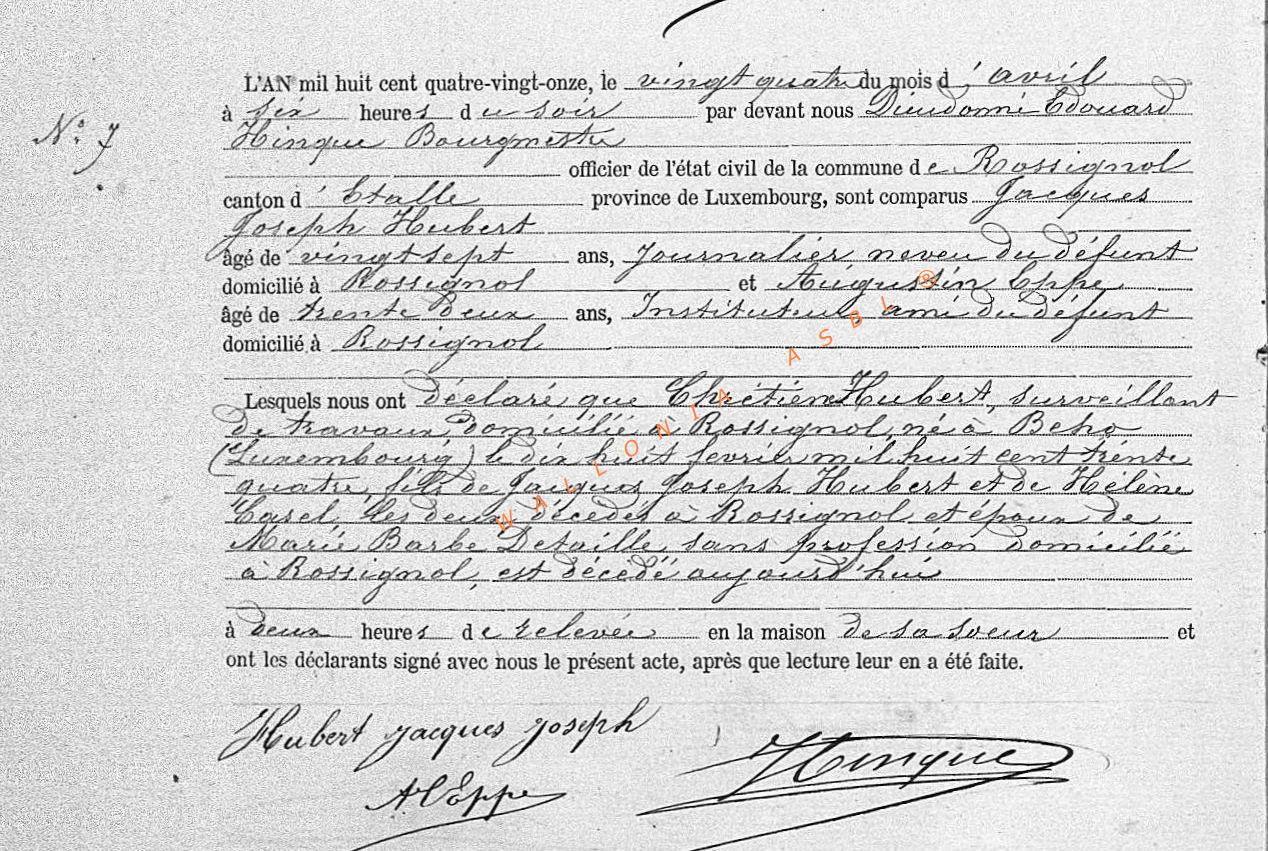 L'AN mil huit cent quatre-vingt-onze, le vingt quatre du mois d'avril
N° 7
à six heures du soir par devant nous Dieudonné Edouard
Hinque Bourgmestre
officier de l'état civil de la commune de Rossignol
canton d'Etalle province de Luxembourg, sont comparus Jacques
Joseph Hubert
âgé de vingt sept ans, Journalier neveu du défunt
domicilié à Rossignol et Augustin Eppe
âgé de trente deux ans, Instituteur, ami du défunt
domicilié à Rossignol
Lesquels nous ont déclaré que Chrétien Hubert, surveillant
de travaux, domicilié à Rossignol, né à Beho
(Luxembourg) le dix huit fevrier mil huit cent trente
quatre, fils de Jacques Joseph Hubert et de Hélène
Casel, les deux décédés à Rossignol et époux de
Marie Barbe Detaille, sans profession domicilié
à Rossignol, est décédé aujourd'hui
à deux heures de relevée en la maison de sa soeur et
ont les déclarants signé avec nous le présent acte, après que lecture leur en a été faite.
Hubert Jacques Joseph
Hinque
A Eppe
WALLONIA ASBL ®